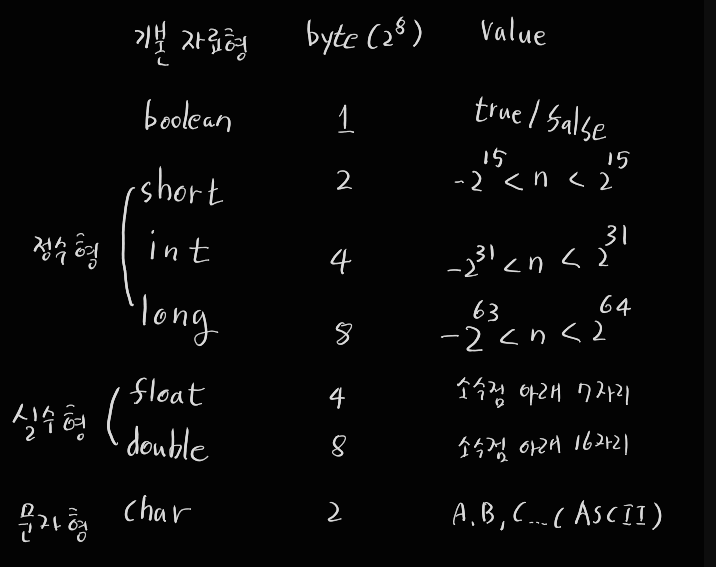 기본 자료형 byte(2⁸) value
boolean 1 true/false
short 2 -2¹⁵ < n < 2¹⁵
정수형 int 4 -2³¹ < n < 2³¹
long 8 -2⁶³ < n < 2⁶⁴
float 4 소수점 아래 7자리
실수형 double 8 소수점 아래 16자리
문자형 char 2 A.B, C...(ASCII)